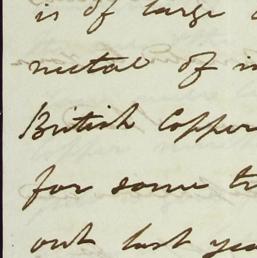 is of large
metal of
British Copper
for some
out last